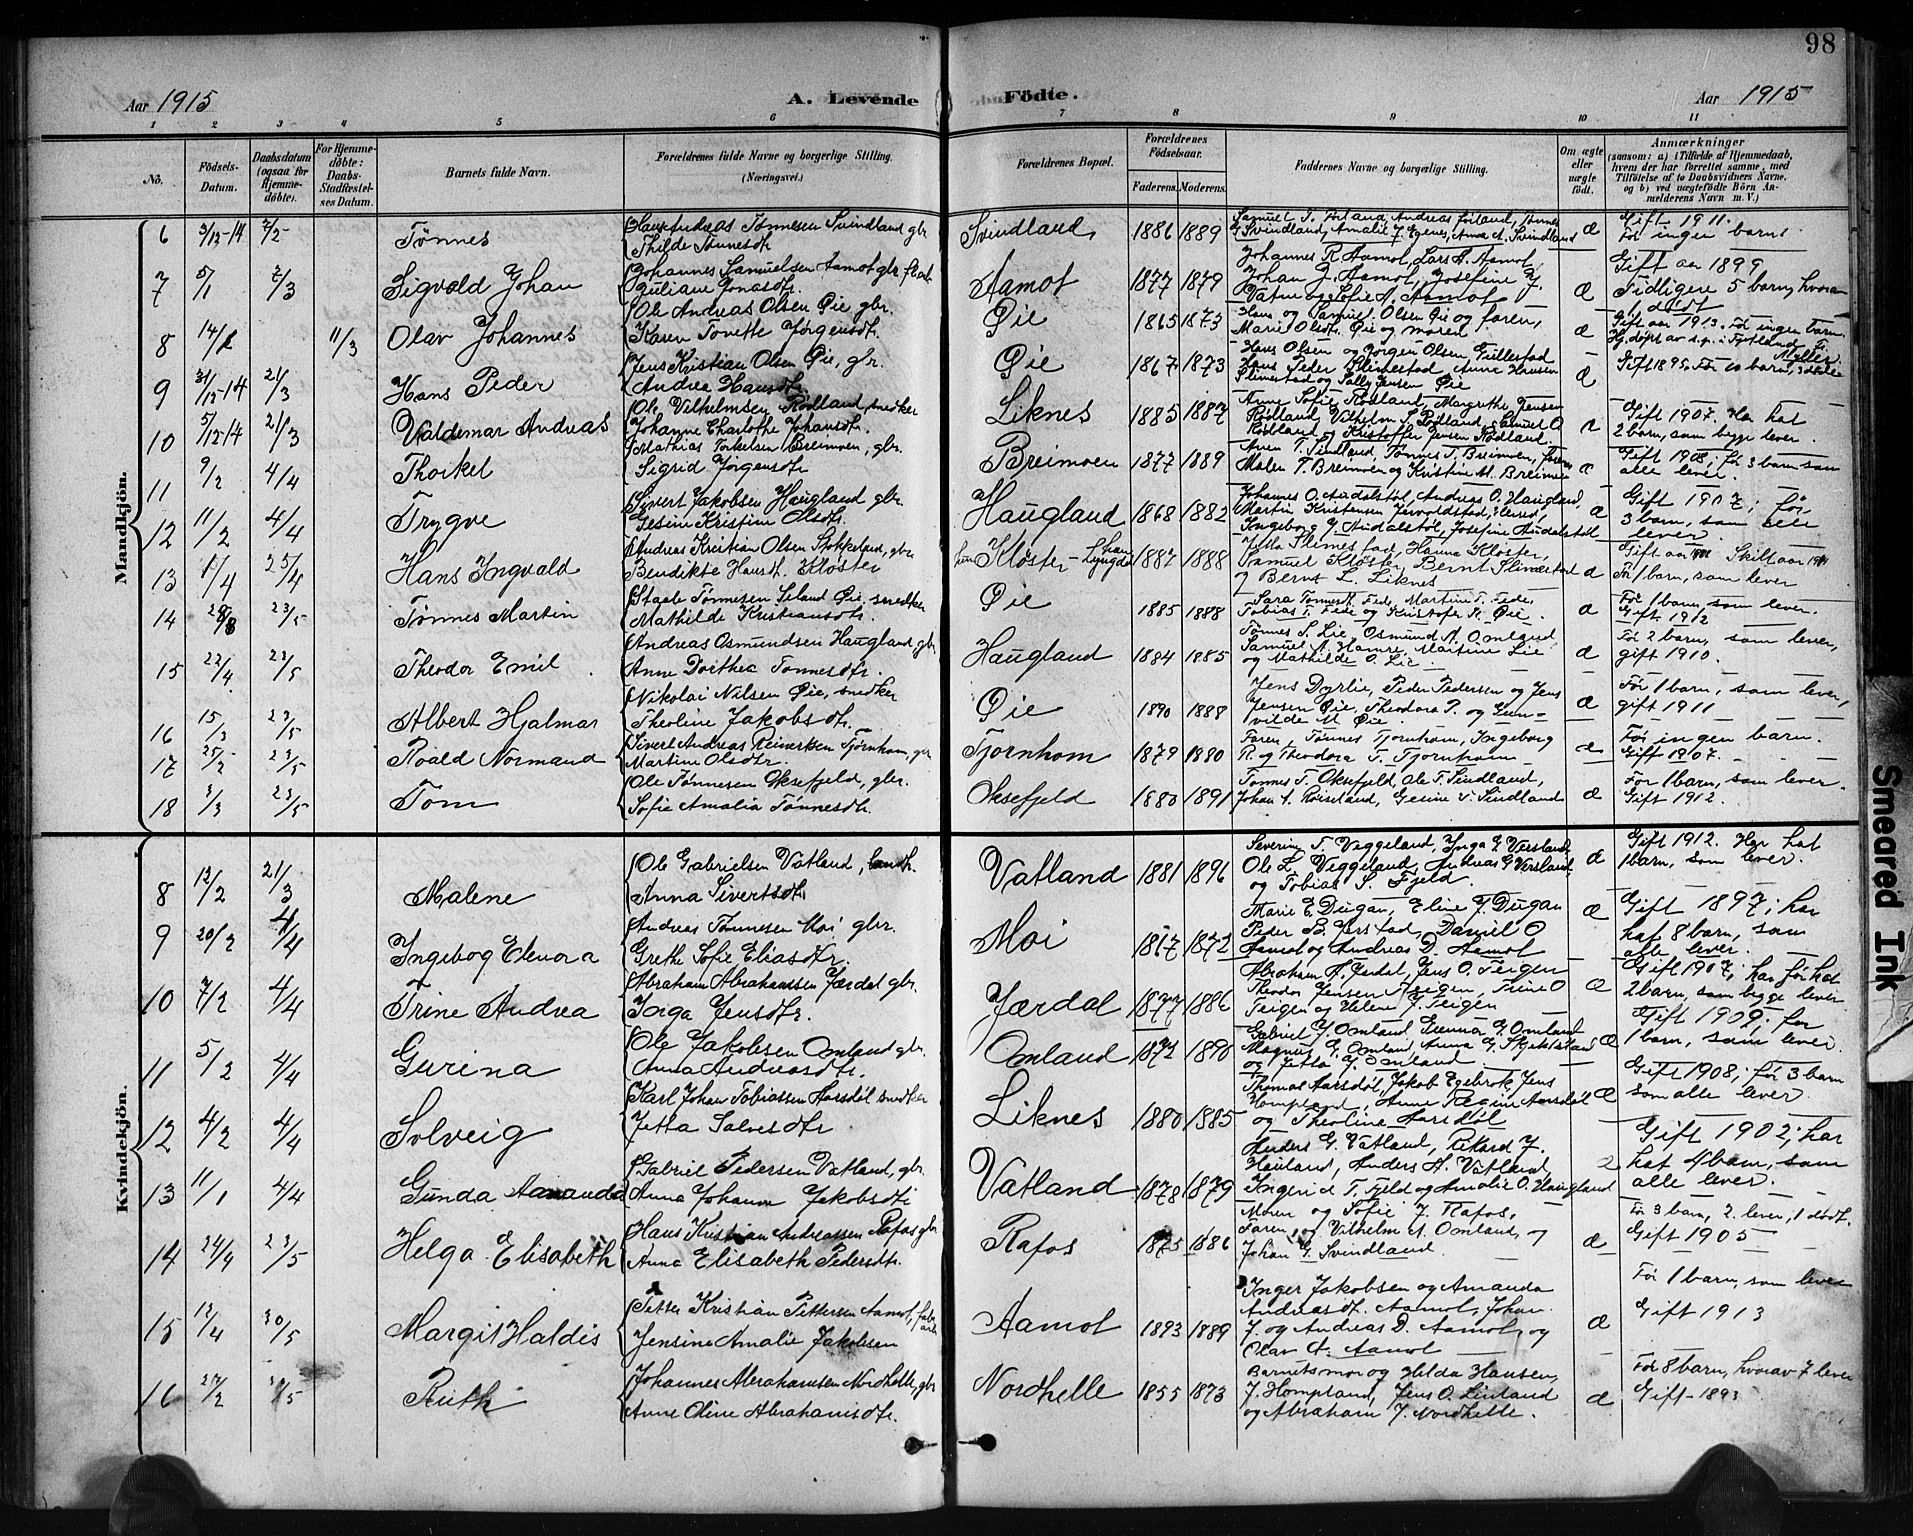 98
Aar 1915
A. Levende Födte.
Aar 1915
1 2 3 4 5 6 7 8 9 10 11
No.
Födsels-Datum.
Daabsdatum (ogsaa for Hjemmedöbte).
For Hjemmedöbte: Daabs-Stadfæstelses Datum.
Barnets fulde Navn.
Forældrenes fulde Navne og borgerlige Stilling. (Næringsvei.)
Forældrenes Bopæl.
Forældrenes Födselsaar.
Faderens. Moderens.
Faddernes Navne og borgerlige Stilling.
Om ægte eller uægte födt.
Anmærkninger
(saasom: a) i Tilfælde af Hjemmedaab, hvem der har forrettet samme, med Tilföielse af to Daabsvidners Navne, og b) ved uægtefödte Börn Anmelderens Navn m. V.)
Mandkjön.
6 3/12-14 7/2 Tønnes
Hans Andreas Tønnesen Svindland gbr
Thilde Tønnesdtr
Svindland 1886 1889
Gift 1911.
Før ingen barn.
7 5/1 2/3 Sigvald Johan
Johannes Samuelsen Aamot gbr
Juliane Jonasdtr.
Aamot 1877 1879
Johannes R Aamot, Lars A. Aamot,
Johan J. Aamot, Josefine J.
Vatne og Sofie A. Aamot
æ
Gift aar 1899
Tidligere 5 barn, hvorav 1 dødt
8 11/3 Olav Johannes
Ole Andreas Olsen Øie gbr.
Karen Tonette Jörgensdtr.
Øie 1865 1873
Hans og Samuel Olsen Øie og faren,
Marie Olsdtr. Øie og moren
æ
Gift aar 1913. Før ingen barn.
9 31/12-14 21/3 Hans Peder
Jens Kristian Olsen Øie, gbr.
Andrea Hansdtr.
Øie 1867 1873
Hans Olsen og Jörgen Olsen, Gullestad
Hans Peder Slimestad, Anne Hansen
Slimestad og Sally Jensen Øie
æ
Gift 1895. Før 10 barn, 3 døde
10 5/12-14 21/3 Valdemar Andreas
Ole Vilhelmsen Rødland, snedker
Johanne Charlothe Johansdtr.
Liknes 1885 1887
Anne Sofie Rødland, Margrethe Jensen
Rødland, Vilhelm L. Rødland, Samuel O.
Rødland og Kristoffer Jensen Rødland.
Gift 1907. Har hat
2 barn, som begge lever.
11 9/2 4/4 Thorkel
Mathias Torkelsen Breimoen, gbr.
Sigrid Jörgensdtr
Breimoen 1877 1889
Malen T. Breimoen og Kristine M. Breimoen
æ
Gift 1908; før 3 barn som
alle lever.
12 11/2 4/4 Trygve
Sivert Jakobsen Haugland gbr.
Gesine Kristine Olsdtr.
Haugland 1868 1882
Johannes O. Audalstøl, Andreas O. Haugland,
Ingeborg G Audalstøl, Josefine Audalstøl
æ
Gift 1907; før
3 barn, som alle
lever.
13 25/4 Hans Ingvald
Andreas Kristian Olsen gbr
Bendikte Hansdt. Kloster
Kloster - Lyngdal 1887 1888
Samuel Kloster, Bernt Slimestad
og Bernt L. Liknes
Før 1 barn, som lever
14 23/5 Tønnes Martin
Staale Tønnesen Seland Øie, snedker
Mathilde Kristiansdtr.
Øie 1885 1888
Sara Tønnesdt. Fede, Martine T. Fede,
Tobias T. Fede og Kristofer K. Øie.
æ
Før 1 barn, som lever.
Gift 1912
15 22/4 23/5 Theodor Emil
Andreas Osmundsen Haugland gbr
Anne Dorthea Tønnesdtr.
Haugland 1884 1885
Tønnes S. Lie, Osmund A. Omland,
Samuel A. Hamre, Martine Lie
og Mathilde O. Lie.
æ
Før 2 barn, som lever,
gift 1910.
16 15/3 23/5 Albert Hjalmar
Nikolai Nilsen Øie, snedker
Theoline Jakobsdtr.
Øie 1890 1888
Jens Dyrlie, Peder Pedersen og Jens
Jensen Øie, Theodora P. og Gun-
vilde M. Øie.
æ
Før 1 barn, som lever,
gift 1911
17 25/2 23/5 Roald Normand
Sivert Andreas Reinertsen Tjørnhom, gbr
Martine Olsdtr.
Tjørnhom 1879 1880
Faren, Tønnes Tjørnhom, Ingeborg
R. og Theodora T. Tjørnhom
æ
Før ingen barn.
Gift 1907.
18 3/3 23/5 Tom
Ole Tønnesen Oksefjeld, gbr.
Sofie Amalia Tønnesdtr.
Oksefjeld 1880 1891
Tønnes T. Oksefjeld, Ole T. Sindland,
Johan A. Røiseland, Gesine T. Sindland
æ
Før 1 barn, som lever.
Gift 1912.
Kvindekjön.
8 12/2 21/3 Malene
Ole Gabrielsen Vatland, landh.
Anna Sivertsdtr
Vatland 1881 1896
Severin T. Veggeland, Inga G. Versland,
Ole L. Veggeland, Andreas G Versland
og Tobias S. Fjeld.
æ
Gift 1912. Har hat
1 barn, som lever.
9 20/2 4/4 Ingebog Elenora
Andreas Tønnesen Moi gbr.
Grethe Sofie Eliasdtr.
Moi 1867 1872
Marie E. Dugan, Eline J. Dugan
Peder B. Yrstad, Daniel O
Aamot og Andreas D. Aamot
æ
Gift 1897; har
hat 8 barn, som
alle lever.
10 7/2 4/4 Trine Andrea
Abraham Abrahamsen Jærdal gbr.
Inga Jensdtr.
Jærdal 1877 1886
Abraham A. Jærdal, Jens O. Teigen
Theodor Jensen Teigen, Trine O
Teigen og Helene J. Teigen
æ
Gift 1907; har før hat
2 barn, som begge lever
11 5/2 4/4 Gurina
Ole Jakobsen Omland gbr.
Anna Andreasdtr.
Omland 1872 1890
Gabriel Y. Omland
Magnus G. Omland
og Jetta G. Omland
æ
Gift 1909; før
1 barn, som lever.
12 4/2 4/4 Solveig
Karl Johan Tobiassen Aarsdøl snedker
Jetta Salvesdtr
Liknes 1880 1885
Thomas Aarsdøl, Jakob Egebrok, Jens
Hompland, Anne Regine Aarsdøl
og Theoline Aarsdøl
æ
Gift 1908; før 3 barn
som alle lever.
13 11/1 4/4 Gunda Amanda
Gabriel Pedersen Vatland, gbr.
Anna Johanne Jakobsdtr
Vatland 1878 1879
Anders G. Vatland, Rikard J.
Hauland, Anders A. Vatland,
Ingerid T. Fjeld og Amalie O. Haugland
Gift 1902; har
hat 4 barn, som
alle lever.
14 24/4 23/5 Helga Elisabeth
Hans Kristian Andreassen Rafos gbr
Anna Elisabeth Pedersdtr.
Rafos 1875 1886
Moren og Sofie J. Rafos,
Faren og Vilhelm A. Omland, og
Johan G. Svindland.
æ
Før 3 barn, 2 lever, 1 dødt.
Gift 1905
15 12/4 30/5 Margit Haldis
Petter Kristian Pettersen Aamot,
Jensine Amalie Jakobsen
Aamot 1893 1889
Inger Jakobsen og Amanda
Andreasdt. Aamot, Johan
J. og Andreas D. Aamot, og
Olav A. Aamot
æ
Før 1 barn, som lever
Gift 1913
16 27/2 Ruth
Johannes Abrahamsen Nordhelle, gbr
Anne Oline Abrahamsdtr.
Nordhelle 1855 1873
Barnets mor og Hilda Hansen,
J. Hompland, Jens O. Linland
og Abraham J. Nordhelle.
æ
Før 8 barn, hvorav 7 lever
Gift 1893
Smeared Ink